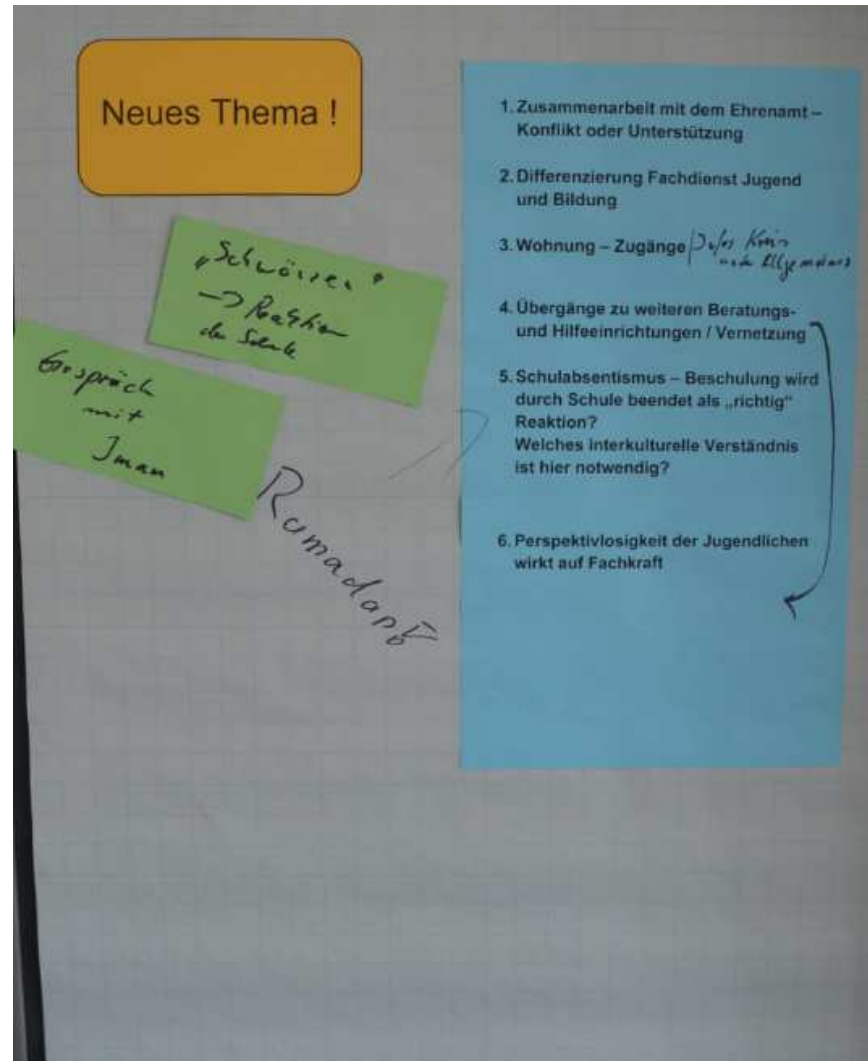 Neues Thema !
„Schwören“
-> Reaktion
der Schule
Gespräch
mit
Imam
Ramadan
1. Zusammenarbeit mit dem Ehrenamt –
Konflikt oder Unterstützung
2. Differenzierung Fachdienst Jugend
und Bildung
3. Wohnung – Zugänge
Allgemeines
4. Übergänge zu weiteren Beratungs-
und Hilfeeinrichtungen / Vernetzung
5. Schulabsentismus – Beschulung wird
durch Schule beendet als „richtig“
Reaktion?
Welches interkulturelle Verständnis
ist hier notwendig?
6. Perspektivlosigkeit der Jugendlichen
wirkt auf Fachkraft